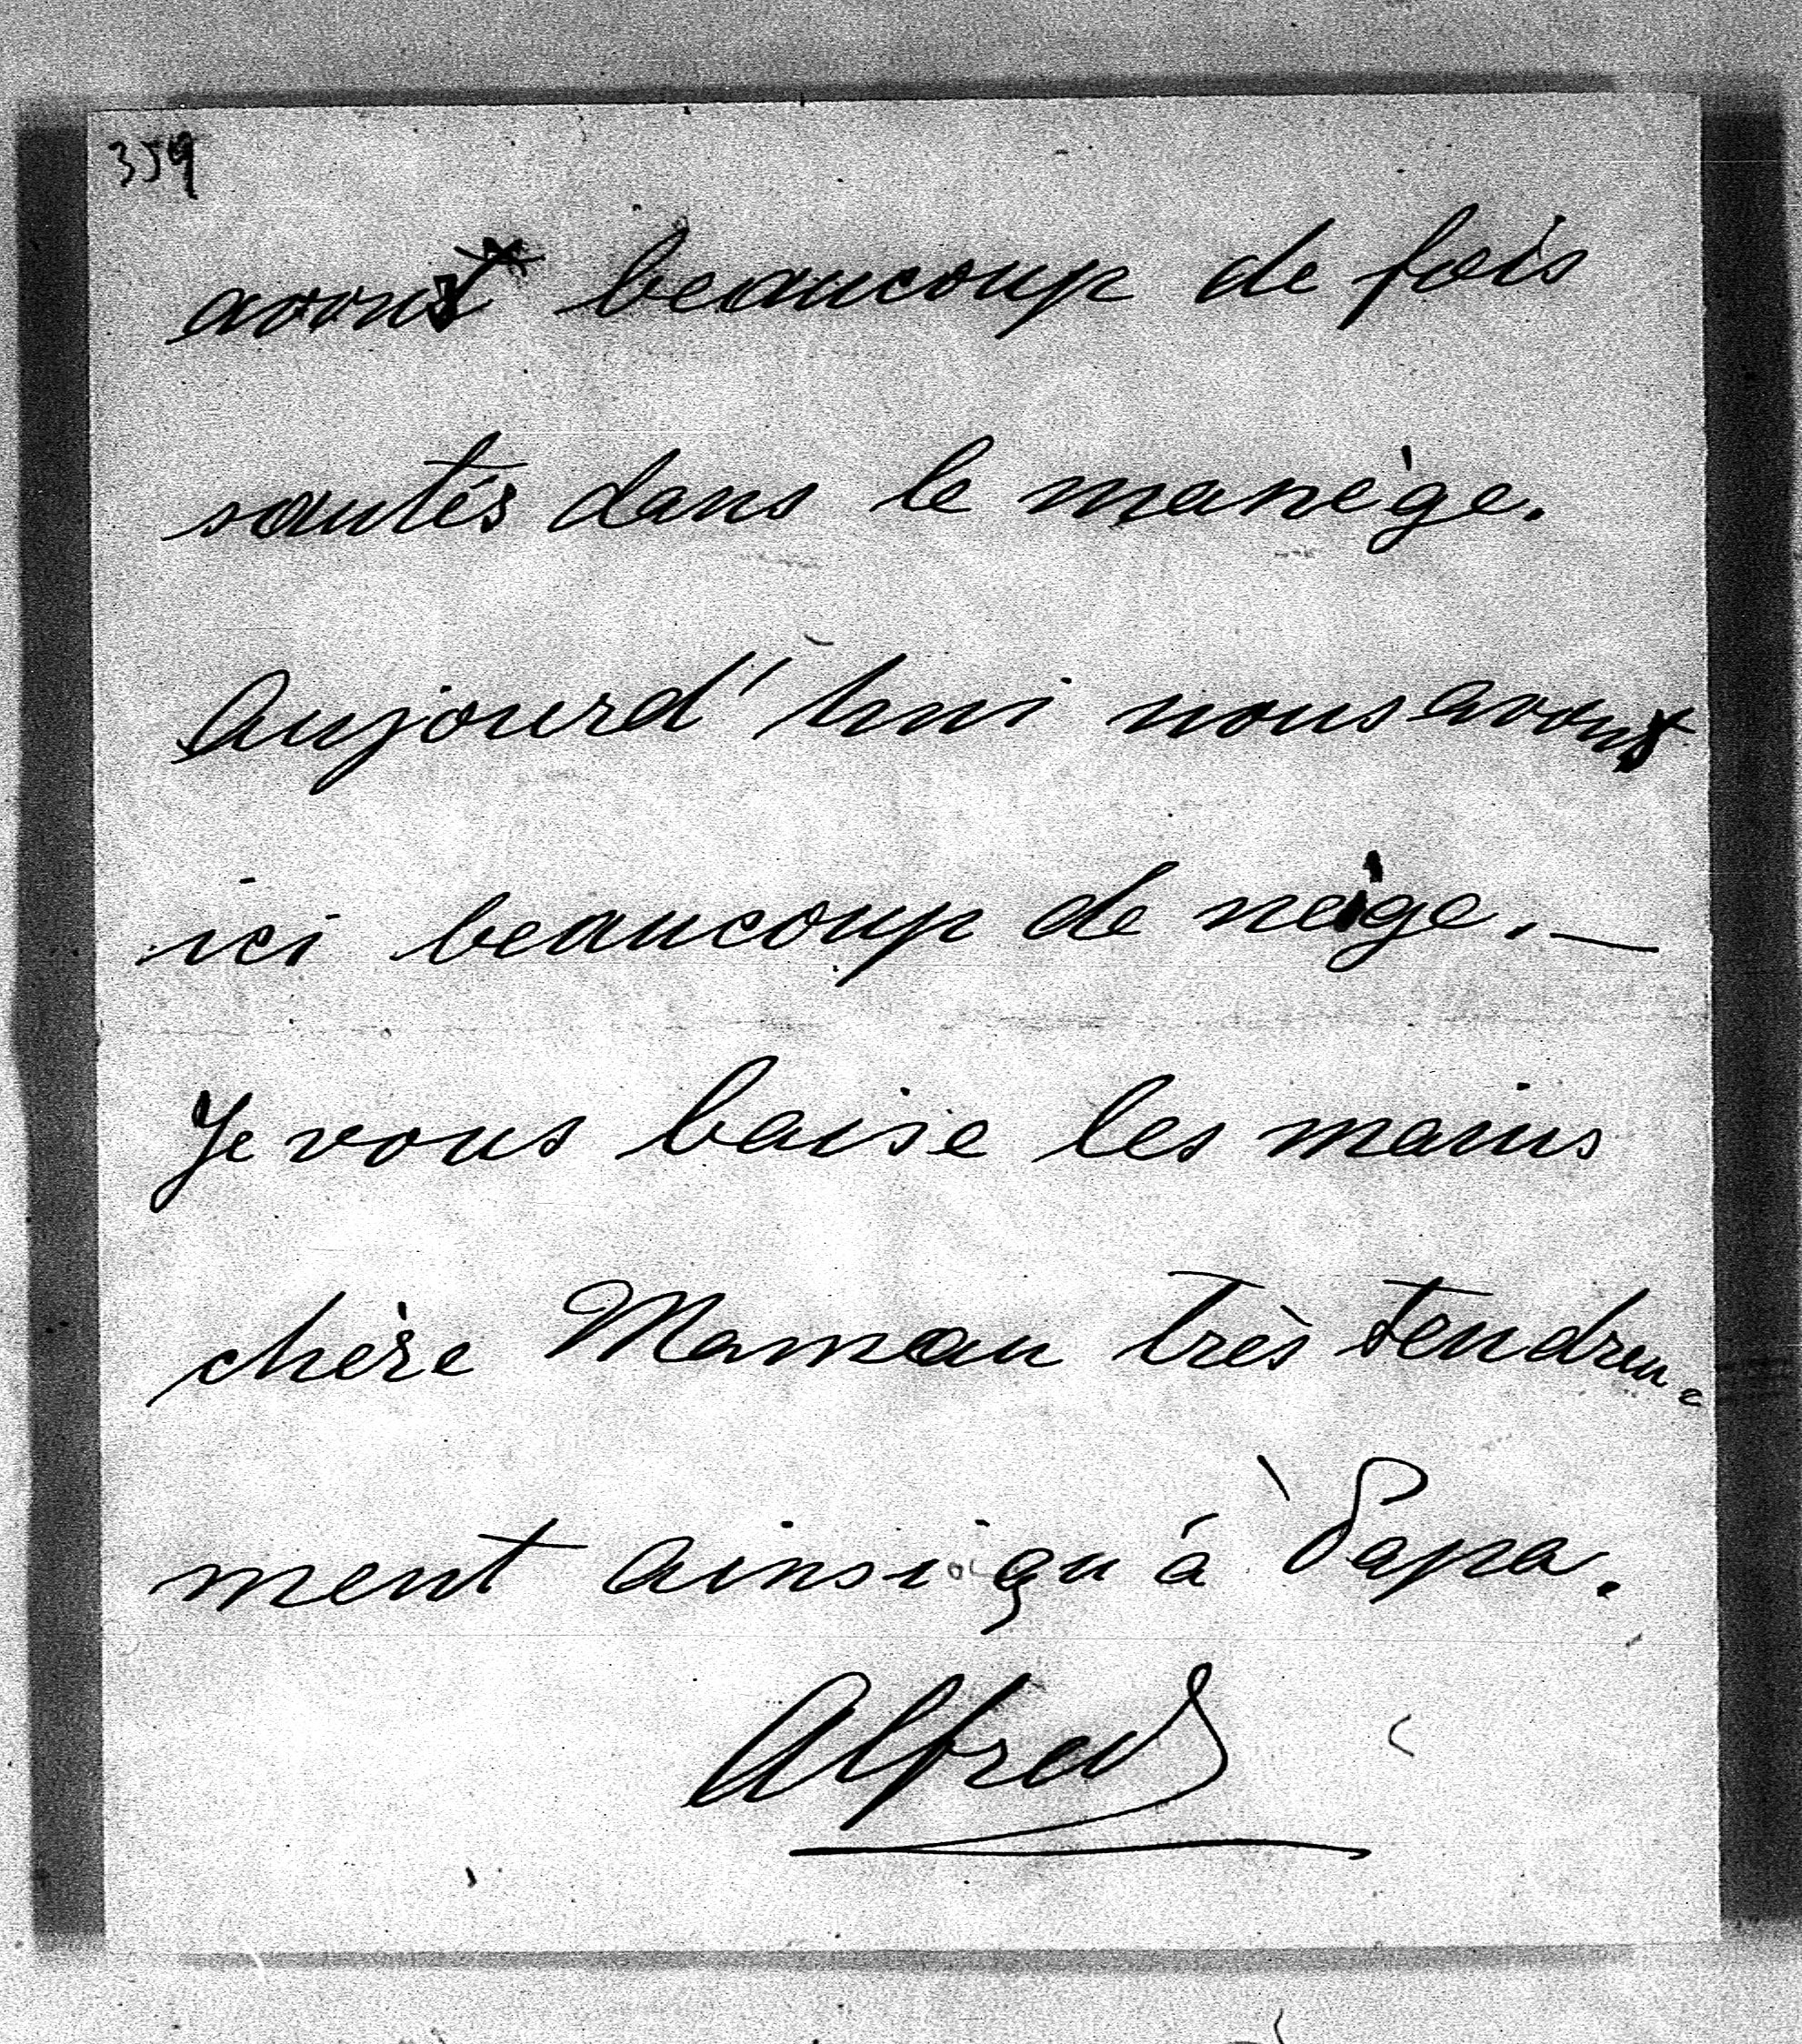 359
avons beaucoup de fois
sautés dans le manège.
Aujourd'hui nous avons
ici beaucoup de neige. —
Je vous baise les mains
chère Maman très tendre-
ment ainsi qu'à Papa.
Alfred